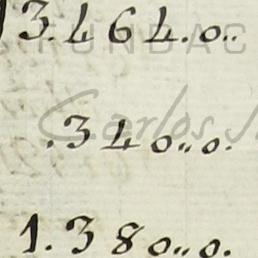 3.464.0..
FUNDAC
Carlos
.340..0.
1.380..0.